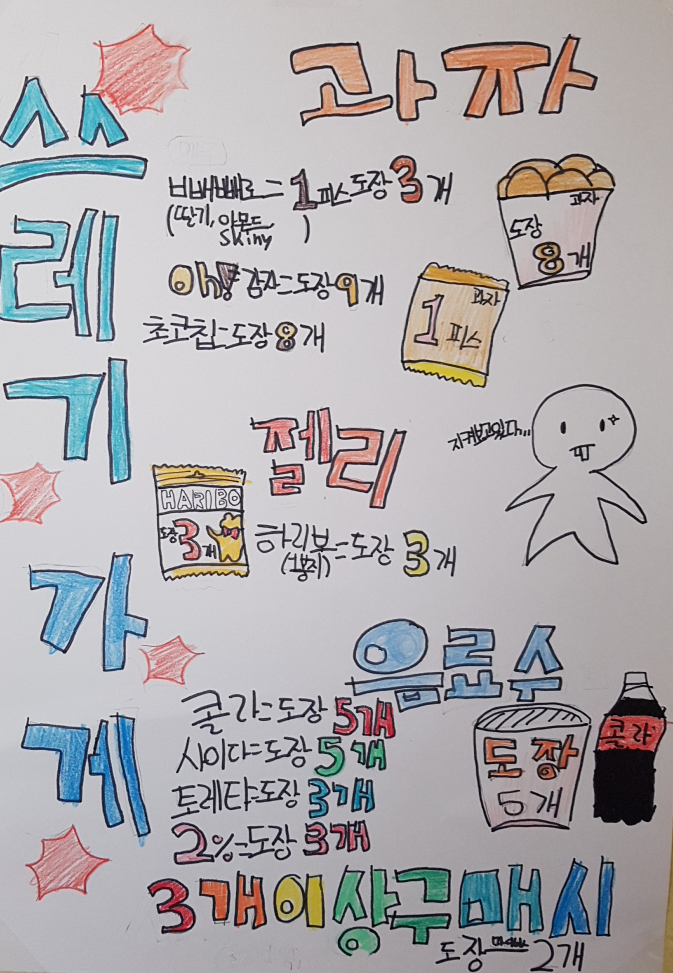 쓰레기가게
과자
빼빼빼로=1피스 도장 3개
(딸기, 아몬드, skiny)
Oh! 감자=도장 9개
초코칩=도장 8개
과자
도장
8개
과자
1피스
지켜보고있다...
젤리
HARIBO
도장
3개
하리보=도장 3개
(1봉지)
음료수
콜라=도장 5개
사이다=도장 5개
토레타=도장 3개
2%=도장 3개
도장
5개
콜라
3개이상구매시
도장 2개